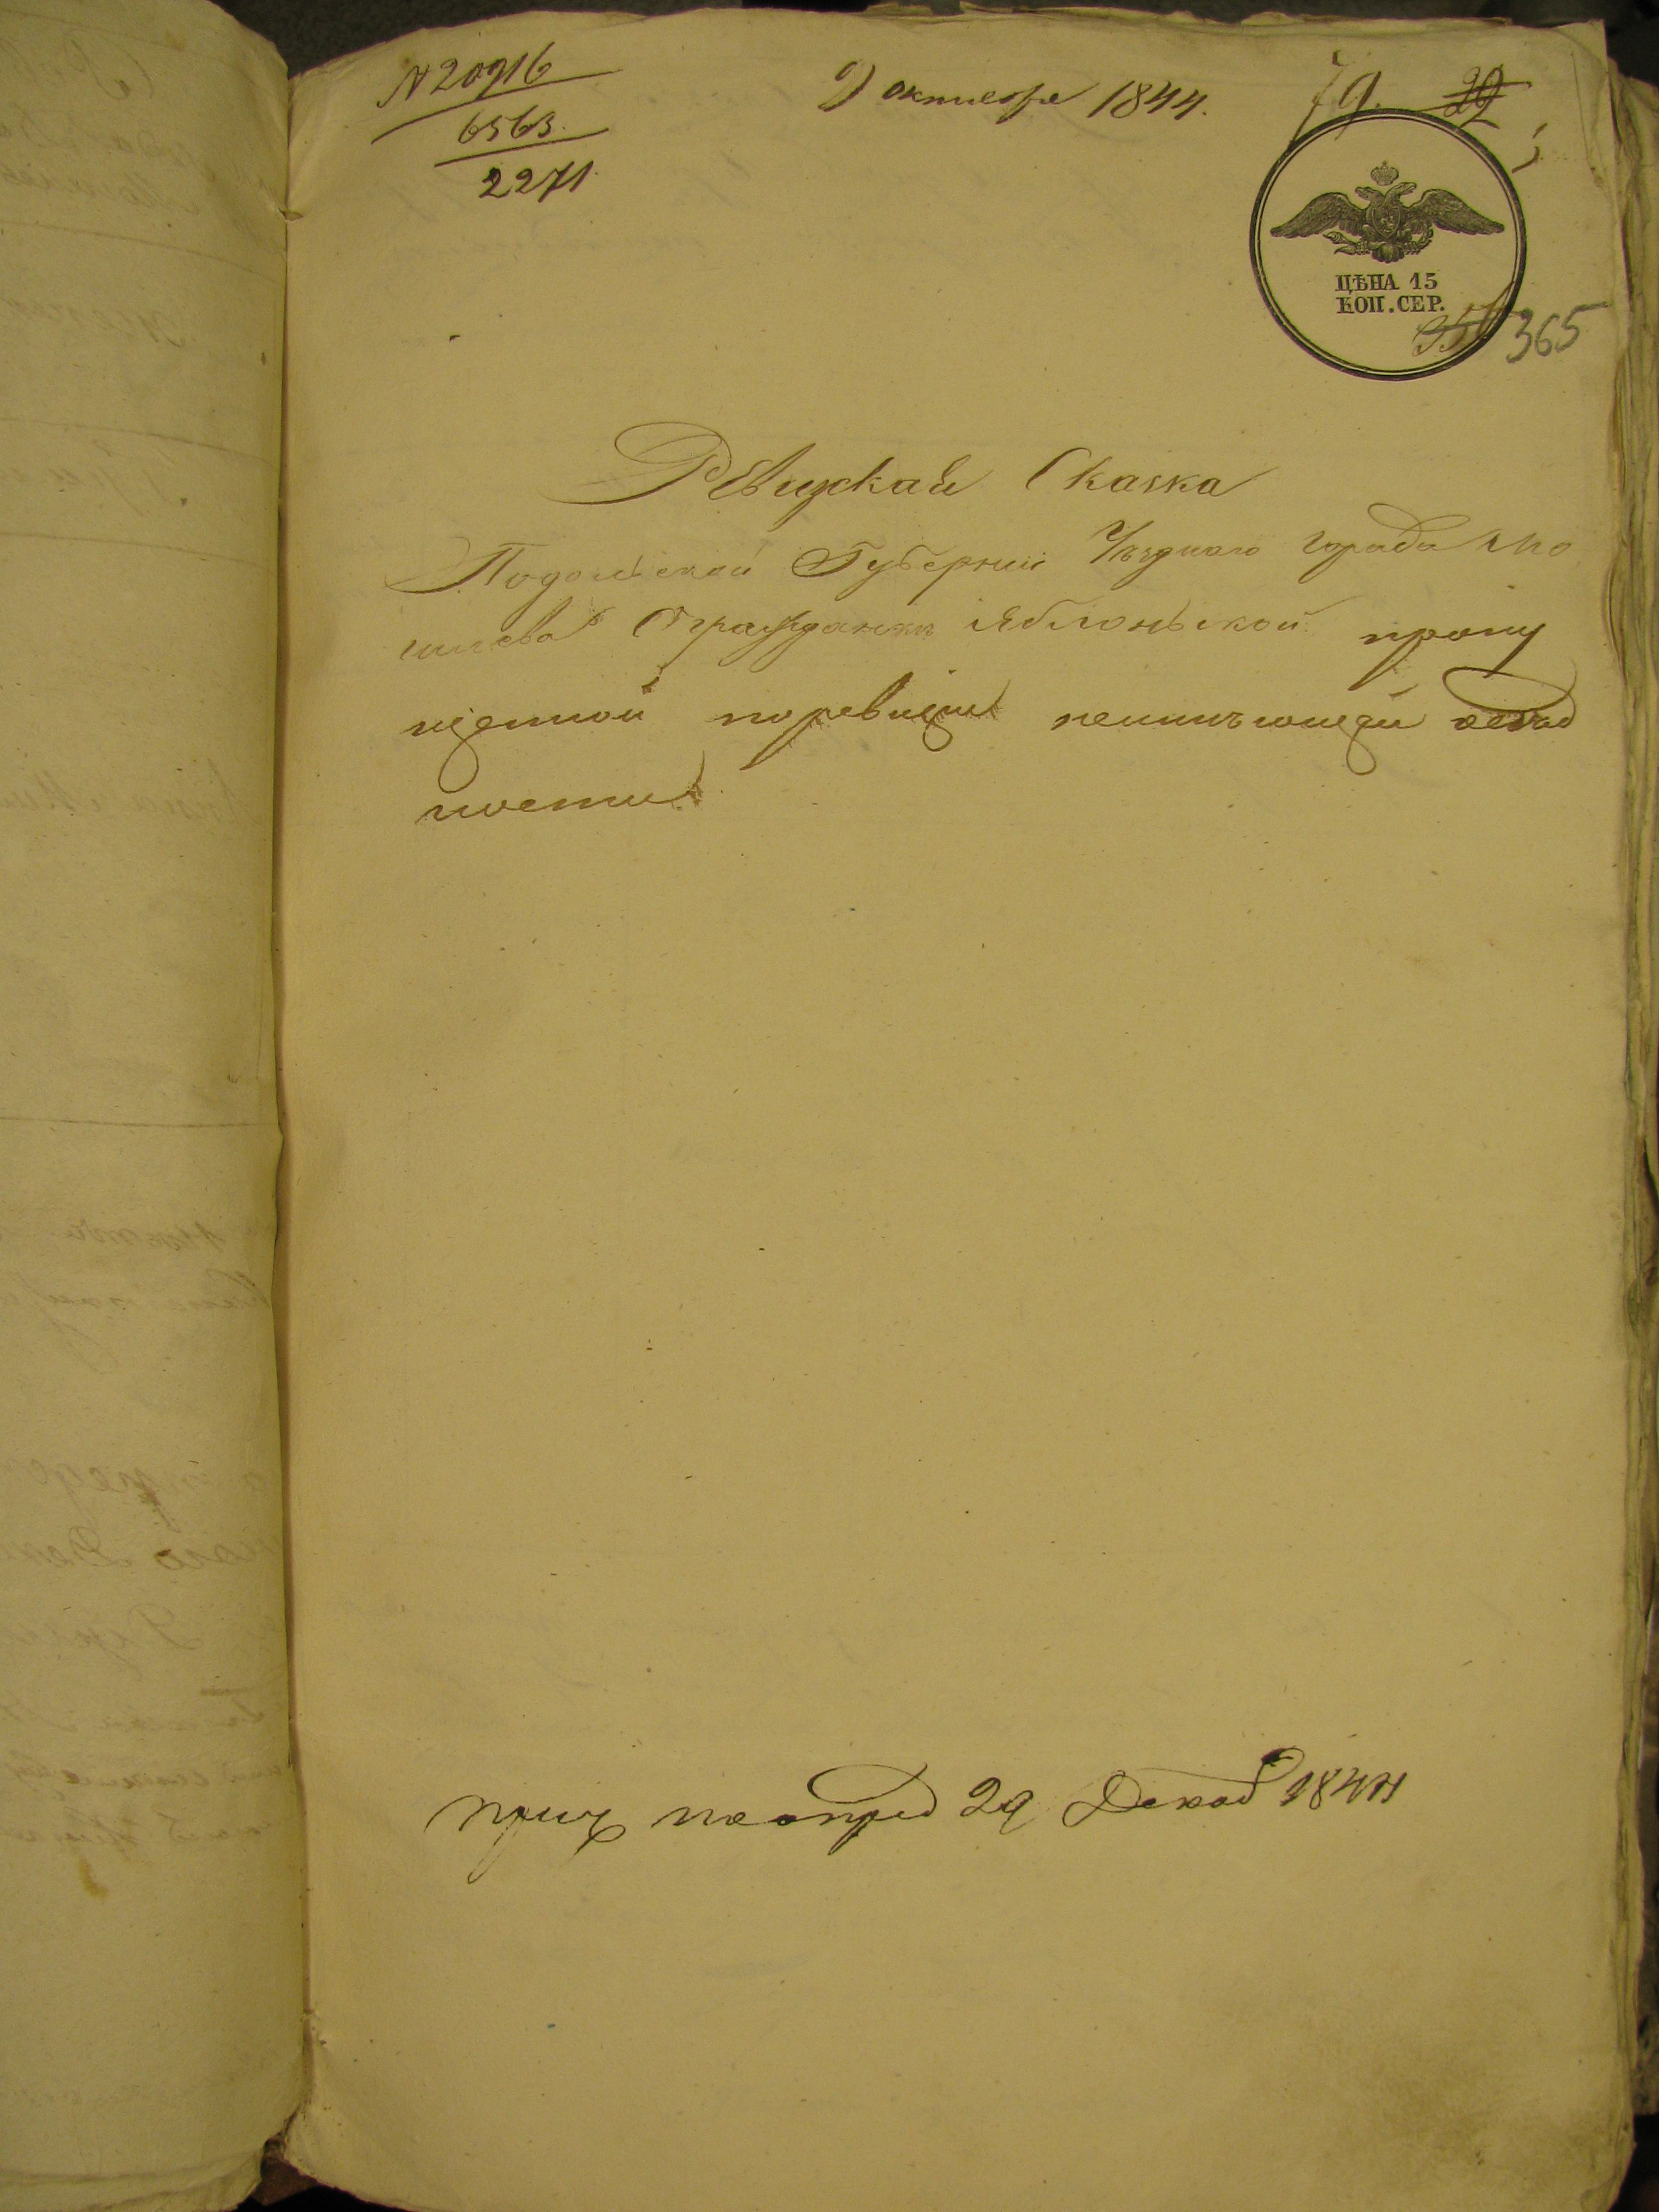 № 20916
6563.
2271.
9 октября 1844.
79. 29
ЦѢНА 15
КОП. СЕР.
365
Ревизская Сказка
Подольской Губернии Уѣзднаго города Мо
гилева Огражданки Яблоньской пропу
щенной поревизии неимѣющей недви
мости
29 Декаб 1844